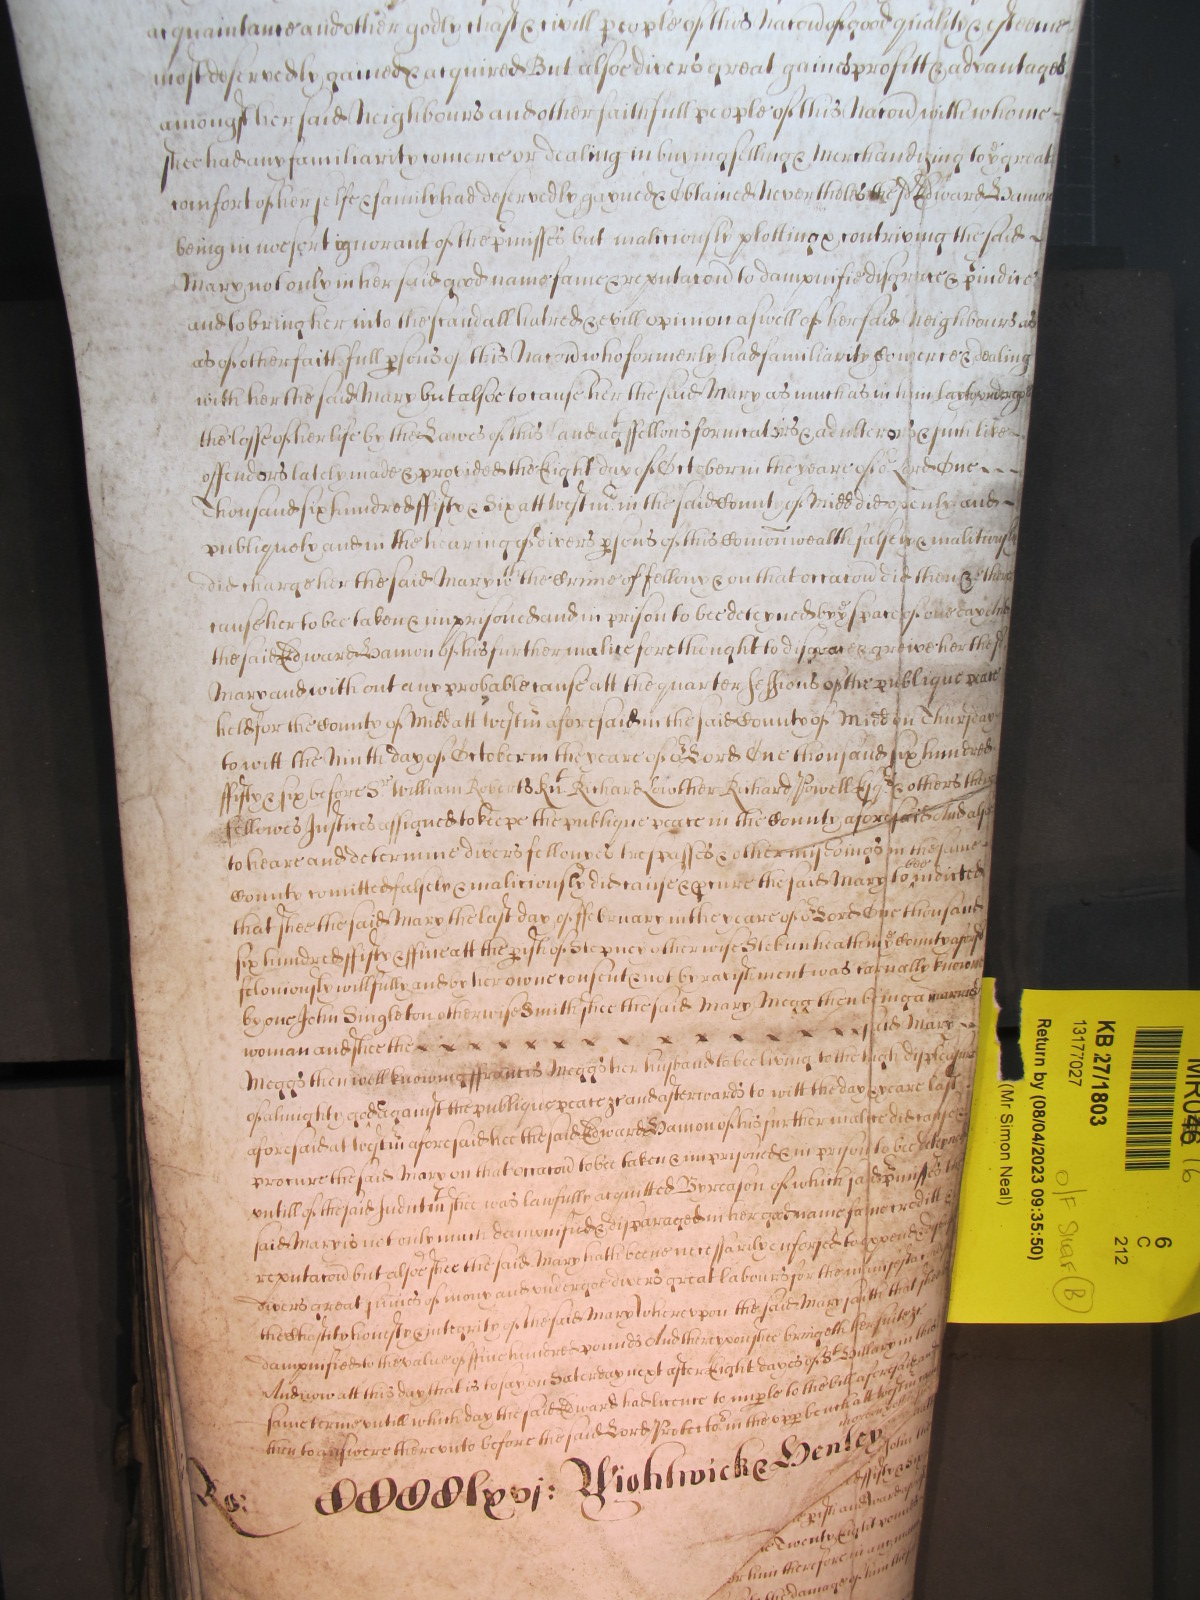 acquaintance and other godly chast & civill people of this Nacon of good quality & esteeme
most deservedly gained & acquired But alsoe divers great gaines profitt & advantages
amongst her said Neighbours and other faithfull people of this Nacon with whome
shee had any familiarity comerce or dealing in buying selling & Merchandizing to ye great
comfort of her selfe & family had deservedly gayned & Obtained Nevertheles the sd Edward Hamon
being in noe sort ignorant of the pmisses but maliciously plotting & contriving the said
Mary not only in her said good name fame & reputacon to dampnifie disgrace & pindice
and to bring her into the scandall hatred & evill opinion aswell of her said Neighbours as
as of other faithfull psons of this Nacon who formerly had familiarity Comerce & dealing
with her the said Mary but alsoe to cause her the said Mary as much as in him lay to undergo
the losse of her life by the Lawes of this land agt ffellons fornicators & adulterors & such like
offendors lately made & provided the Eight day of October in the yeare of or Lord One
Thousand six hundred ffifty & Six att Westm in the said County of Midd did openly and
publiquely and in the hearing of divers psons of this Comonwealth falsely & malitiously
did charge her the said Mary wth the Crime of fellony & on that occacon did then & there
cause her to bee taken & imprisoned and in prison to bee deteyned by ye space of one day And
the said Edward Hamon of his further malice forethought to disgrace & greive her the sd
Mary and without any probable cause att the quarter Sessions of the publique peace
held for the County of Midd att Westm aforesaid in the said County of Midd on Thursday
to witt the Ninth day of October in the yeare of or Lord One thousand six hundred
ffifty & six before Sr William Roberts Knt Richard Lowther Richard Powell Esqrs & others their
fellowes Justices assigned to keepe the publique peace in the County aforesaid And alsoe
to heare and determine divers fellonyes trespasses & other misdoings in the same
County comitted falsely & maliciously did cause & pcure the said Mary to bee indicted
that shee the said Mary the last day of ffebruary in the yeare of or Lord One thousand
six hundred ffifty & ffive att the pish of Stepney otherwise Stebunheath in ye County aforesd
feloniously willfully and by her owne consent & not by ravishment was carnally knowne
by one John Singleton otherwise Smith shee the said Mary Megg then being a married
woman and shee the x x x x x x x x x x x x said Mary
Meggs then well knowing ffrancis Meggs her husband to bee living to the high displeasure
of almighty god against the publique peace &c and afterwards to witt the day & yeare last
aforesaid at Westm aforesaid hee the said Edward Hamon of his further malice did cause &
procure the said Mary on that occacon to bee taken & imprisoned & in prison to bee deteyned
untill of the said Indictmt shee was lawfully acquitted By reason of which said pmisses the
said Mary is not only much dampnified & disparaged in her good name fame creditt &
reputacon but alsoe shee the said Mary hath beene necessarily enforced to expend
divers great sumes of mony and undergoe divers great labours for the manifestacon
the Chastity honesty & integrity of the said Mary Whereupon the said Mary saith that shee
dampnified to the value of ffive hundred pounds And thereupon shee bringeth her suite &c
And now att this day that is to say on Saturday next after Eight dayes of St Hillary in this
same terme untill which day the said Edward had licence to imple to the bill aforesaid and
then to answere thereunto before the said Lord Protector in the upp bench att Westm
Ro: CCCClxvj: Wightwick & Henley
John
ffifty & six
pish and ward of
Twenty Eight pounds
or him therefore in any
the damage of him the
KB 27/1803
13177027
Return by (08/04/2023 09:35:50)
(Mr Simon Neal)
6
C
212
O/F Shelf B